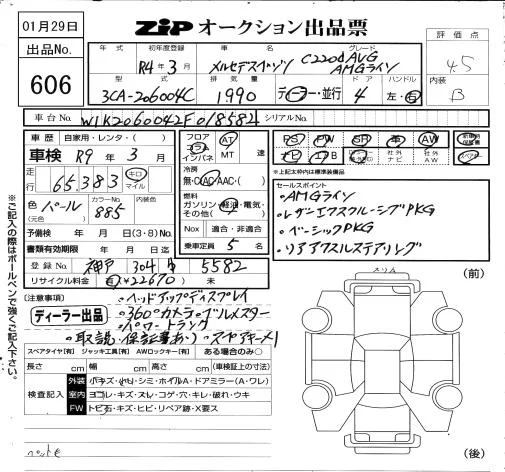 01月29日
ZIP オークション出品票
出品No.
606
評価点
4.5
内装
B
年式 初年度登録 車名 グレード
R4年3月 メルセデスベンツ C220d AVG
AMGライン
型式 排気量 ドア ハンドル
3CA-206004C 1990 ディーラー・並行 4 左・右
車台No. W1K2060042F018582 シリアルNo.
車歴 自家用・レンタ・( )
車検 R9年3月
走行 65,383 キロ マイル
色 パール
(元色)
カラーNo.
885
予備検 年 月 日(3・8)No.
書類有効期限 年 月 日迄
登録No. 神戸 304 5582
リサイクル料金 有(¥22670) 無
フロア コラム インパネ
AT MT 速
冷房
無・AC・AAC・( )
燃料
ガソリン・軽油・電気・
その他( )
Nox 適合・非適合
乗車定員 5 名
PS PW SR 革 AW
ナビ エアB 社外ナビ 社外AW
※上記太枠内は標準装備品
セールスポイント
・AMGライン
・レザーエクスクルーシブPKG
・ベーシックPKG
・リアアクスルステアリング
(注意事項)
ディーラー出品
・ヘッドアップディスプレイ
・360°カメラ・ブルメスター
・パワートランク
・取説・保証書あり スペアキー×1
スペアタイヤ[有] ジャッキ工具[有] AWロックキー[有] ある場合のみ○
長さ cm 幅 cm 高さ cm (車検証上の寸法)
検査記入
外装 小キズ・小凹・シミ・ホイルA・ドアミラー(A・ワレ)
室内 ヨゴレ・キズ・スレ・コゲ・穴・キレ・破れ・ウキ
FW トビ石・キズ・ヒビ・リペア跡・X要ス
(前)
(後)
※ご記入の際はボールペンで強くご記入下さい。